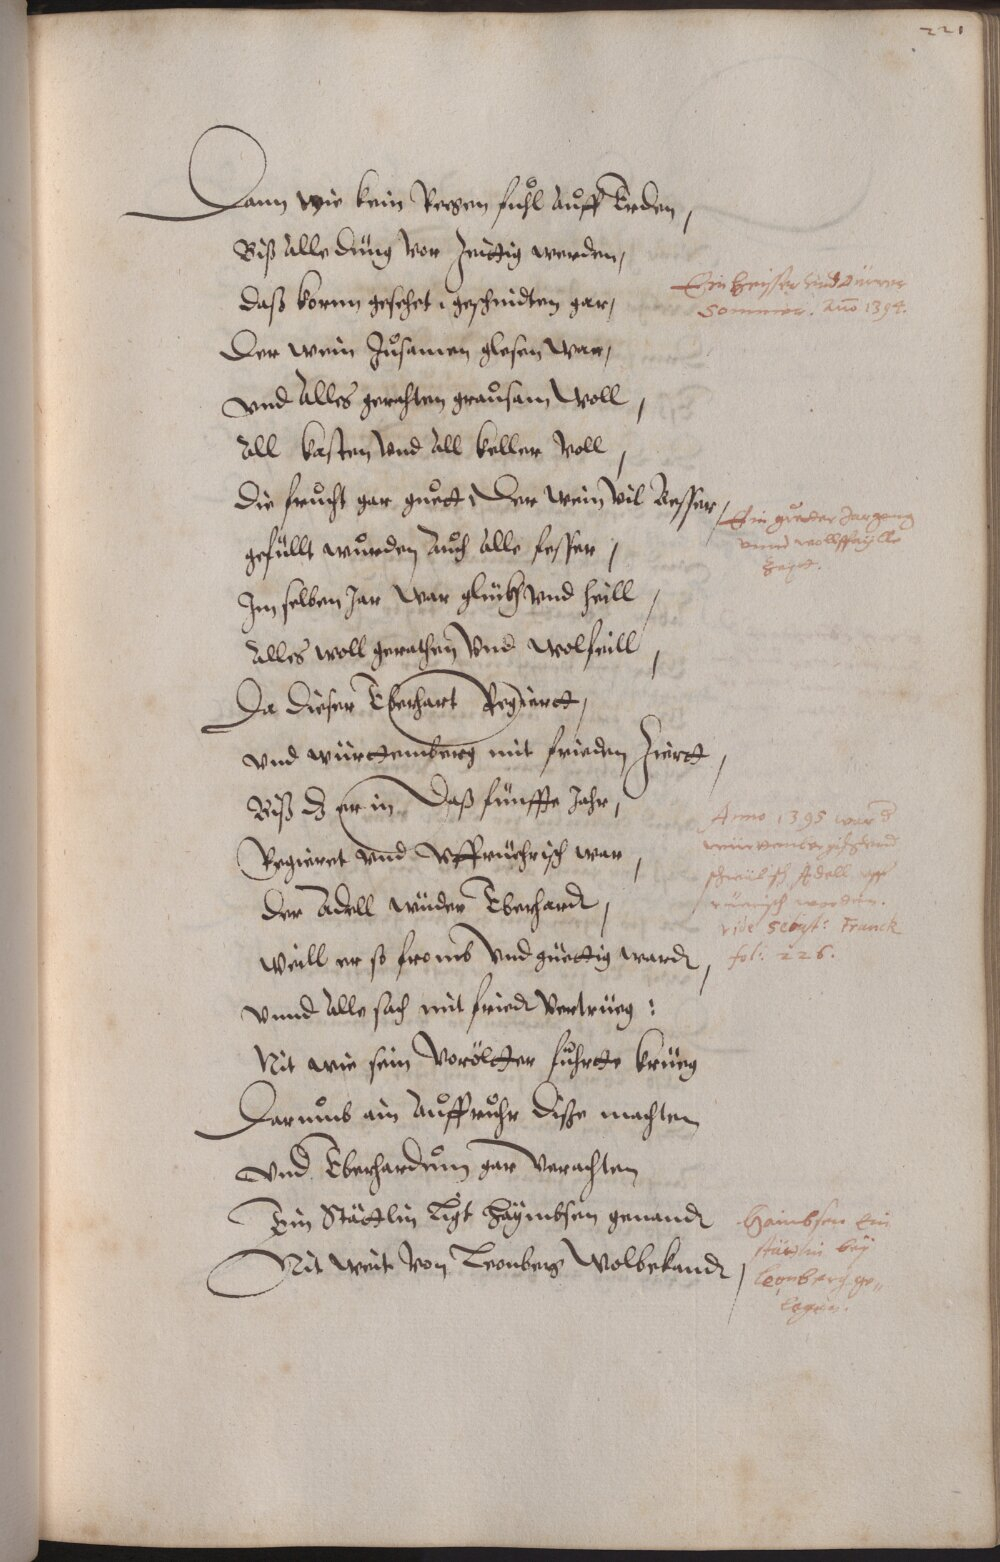 221
Dann wie kein Regen fuhl auff Erden,
Biß alle ding vor Zeittig werden,
daß kornn gesehet, geschnidten gar,
Der wein Zusamen glesen war,
vnd Alles gerahten grausam woll,
all kasten vnd all keller voll,
die frucht gar guett, Der wein vil besser,
gefüllt wurden auch alle fesser,
Im selben Jar war glückh vnd heill,
alles woll gerathen vnd wolfeill,
Da dieser Eberhart Regiertt,
vnd württemberg mit frieden Ziertt,
Biß ds er in daß fünffte Jahr,
Regieret vnd Vffrüehrisch war,
der Adell wüder Eberhardt,
weill er so fromb vnd güettig wardt,
vnnd alle sach mit friedt vertrüeg:
Nit wie sein Voröltter fuhrtte krüeg
Darumb ain Auffruhr diße machten
vnd Eberhardum gar verachten
Ein Stättlin ligt Haÿmbsen genandt
Nit weit von Leonberg wolbekandt,
Ein heisser vnd dürrer
Sommer. Ano 1394.
Ein guetter Jargang
vnnd wollffaÿlle
Zeitt.
Anno 1395 war d
würtenbergisch vnd
schwäbisch Adell vff
rüerisch worden.
vide Sebast: Franck
fol: 226.
Haimbsen Ein
stätlin beÿ
Leonberg ge„
legen.